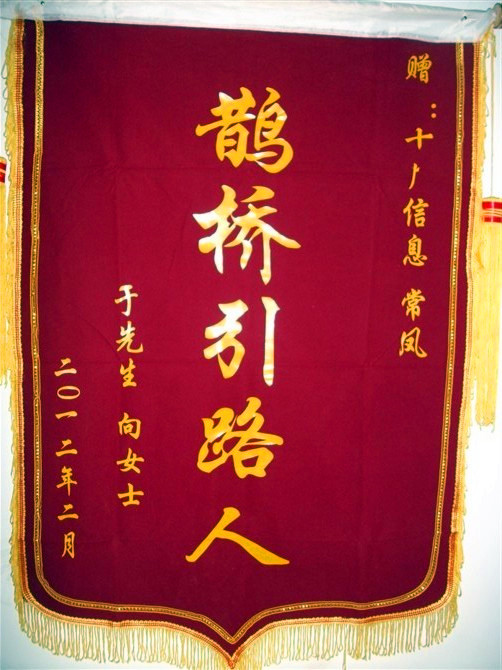 赠：十厂信息 常凤
鹊桥引路人
于先生 向女士
二〇一二年二月